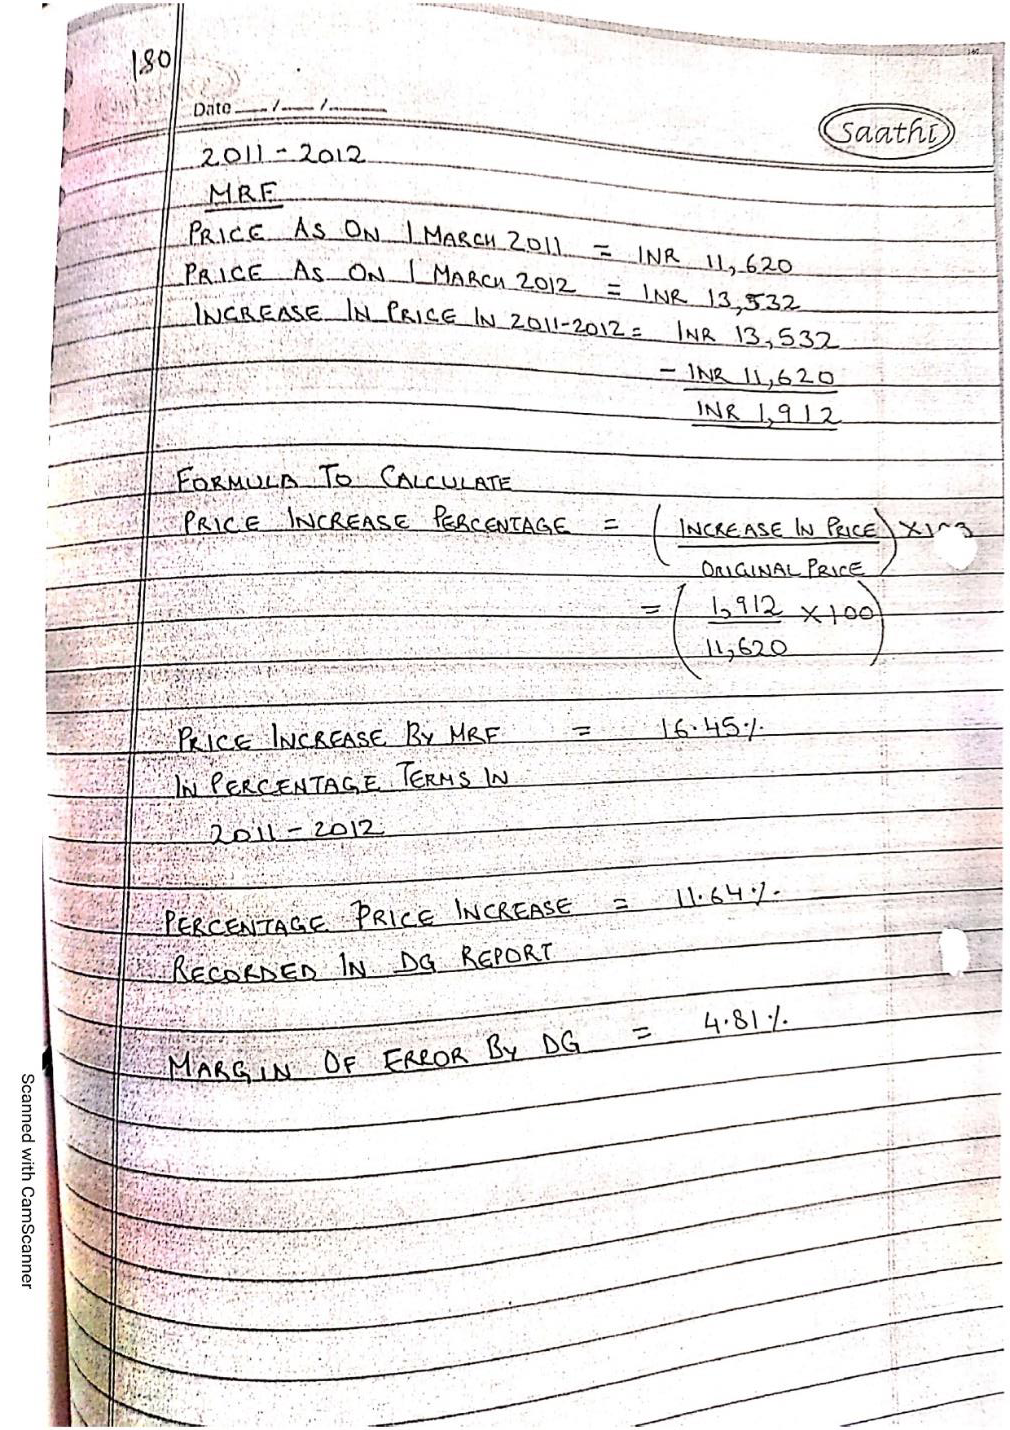 180
Date ___/___/______
Saathi
2011-2012
MRF
PRICE AS ON 1 MARCH 2011 = INR 11,620
PRICE AS ON 1 MARCH 2012 = INR 13,532
INCREASE IN PRICE IN 2011-2012 = INR 13,532
- INR 11,620
INR 1,912
FORMULA TO CALCULATE
PRICE INCREASE PERCENTAGE = (INCREASE IN PRICE
ORIGINAL PRICE)
= (1,912 X 100
11,620)
PRICE INCREASE BY MRF = 16.45%
IN PERCENTAGE TERMS IN
2011-2012
PERCENTAGE PRICE INCREASE = 11.64%
RECORDED IN DG REPORT
MARGIN OF ERROR BY DG = 4.81%
Scanned with CamScanner